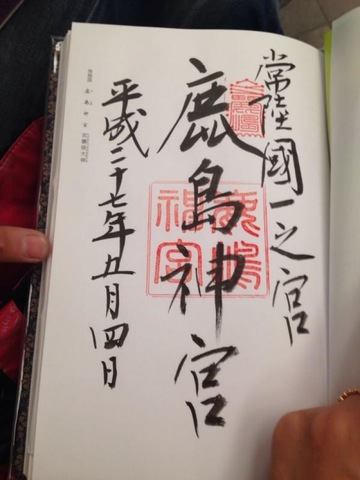 常陸國一之宮
鹿島神宮
鹿嶋神宮
平成二十七年五月四日